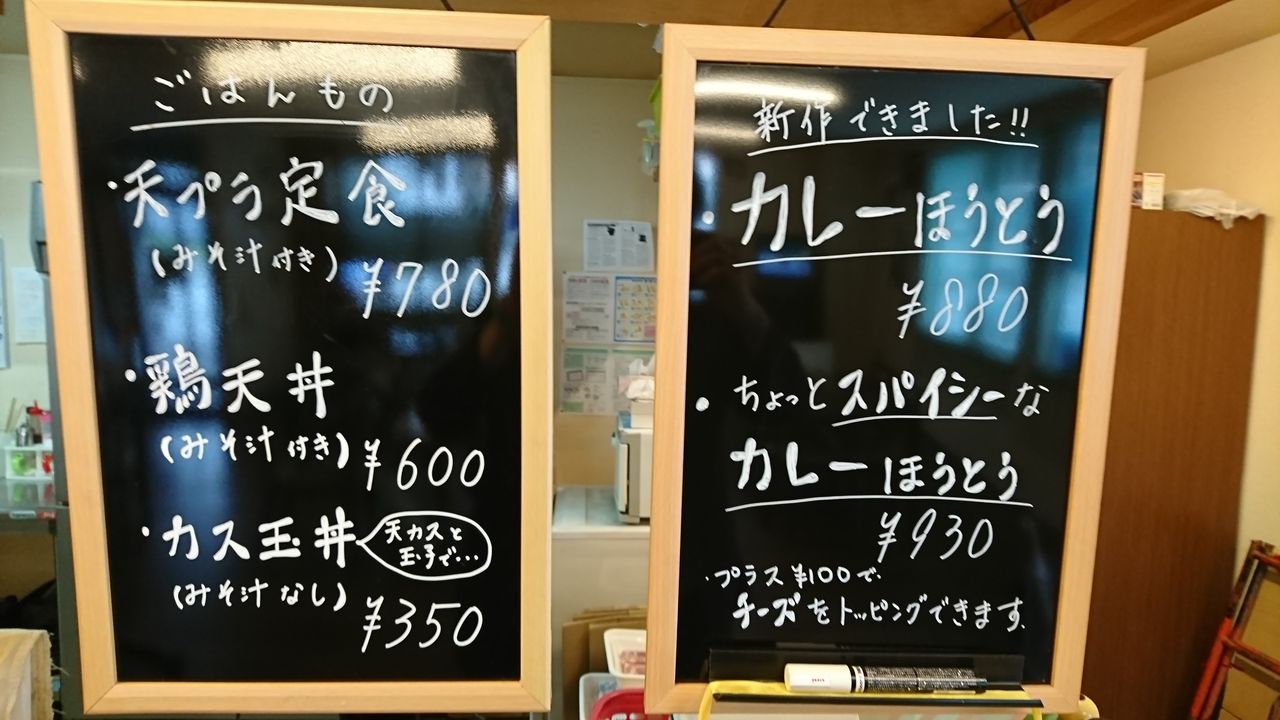 ごはんもの
・天プラ定食
(みそ汁付き)
¥780
・鶏天丼
(みそ汁付き)
¥600
・カス玉丼
天カスと
玉子で…
(みそ汁なし)
¥350
新作できました!!
・カレーほうとう
¥880
・ちょっとスパイシーな
カレーほうとう
¥930
・プラス¥100で
チーズをトッピングできます。